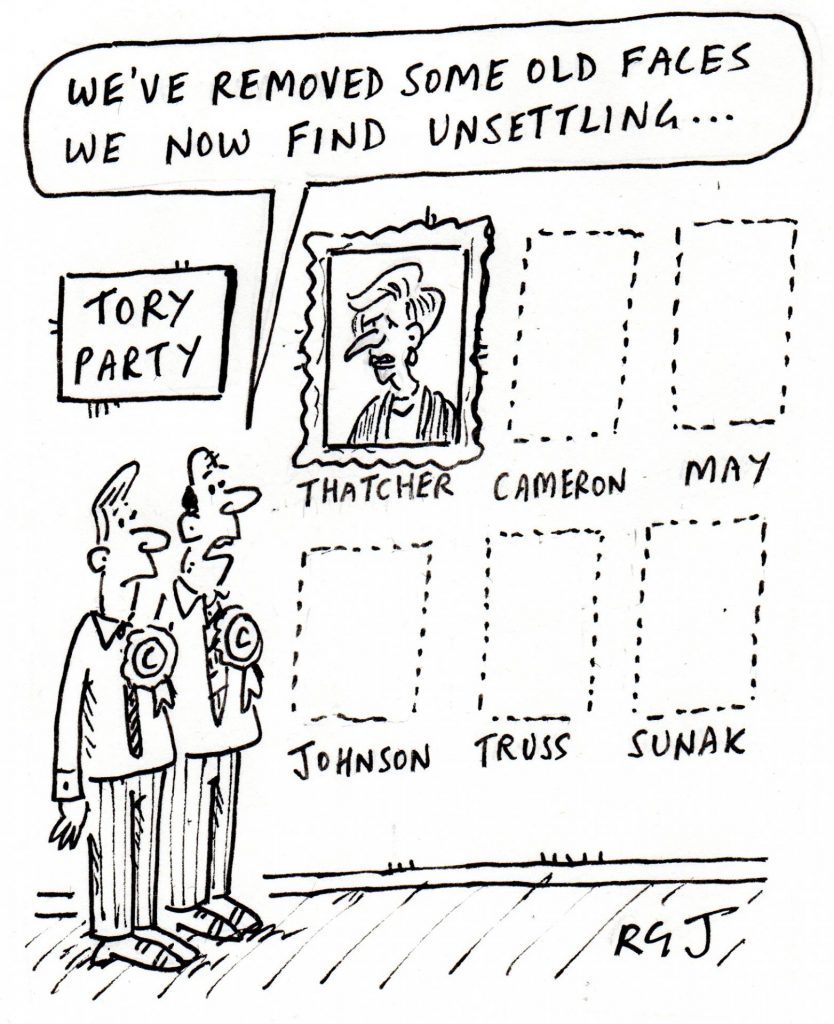 WE'VE REMOVED SOME OLD FACES
WE NOW FIND UNSETTLING...
TORY
PARTY
THATCHER
CAMERON
MAY
C
C
JOHNSON
TRUSS
SUNAK
RGJ